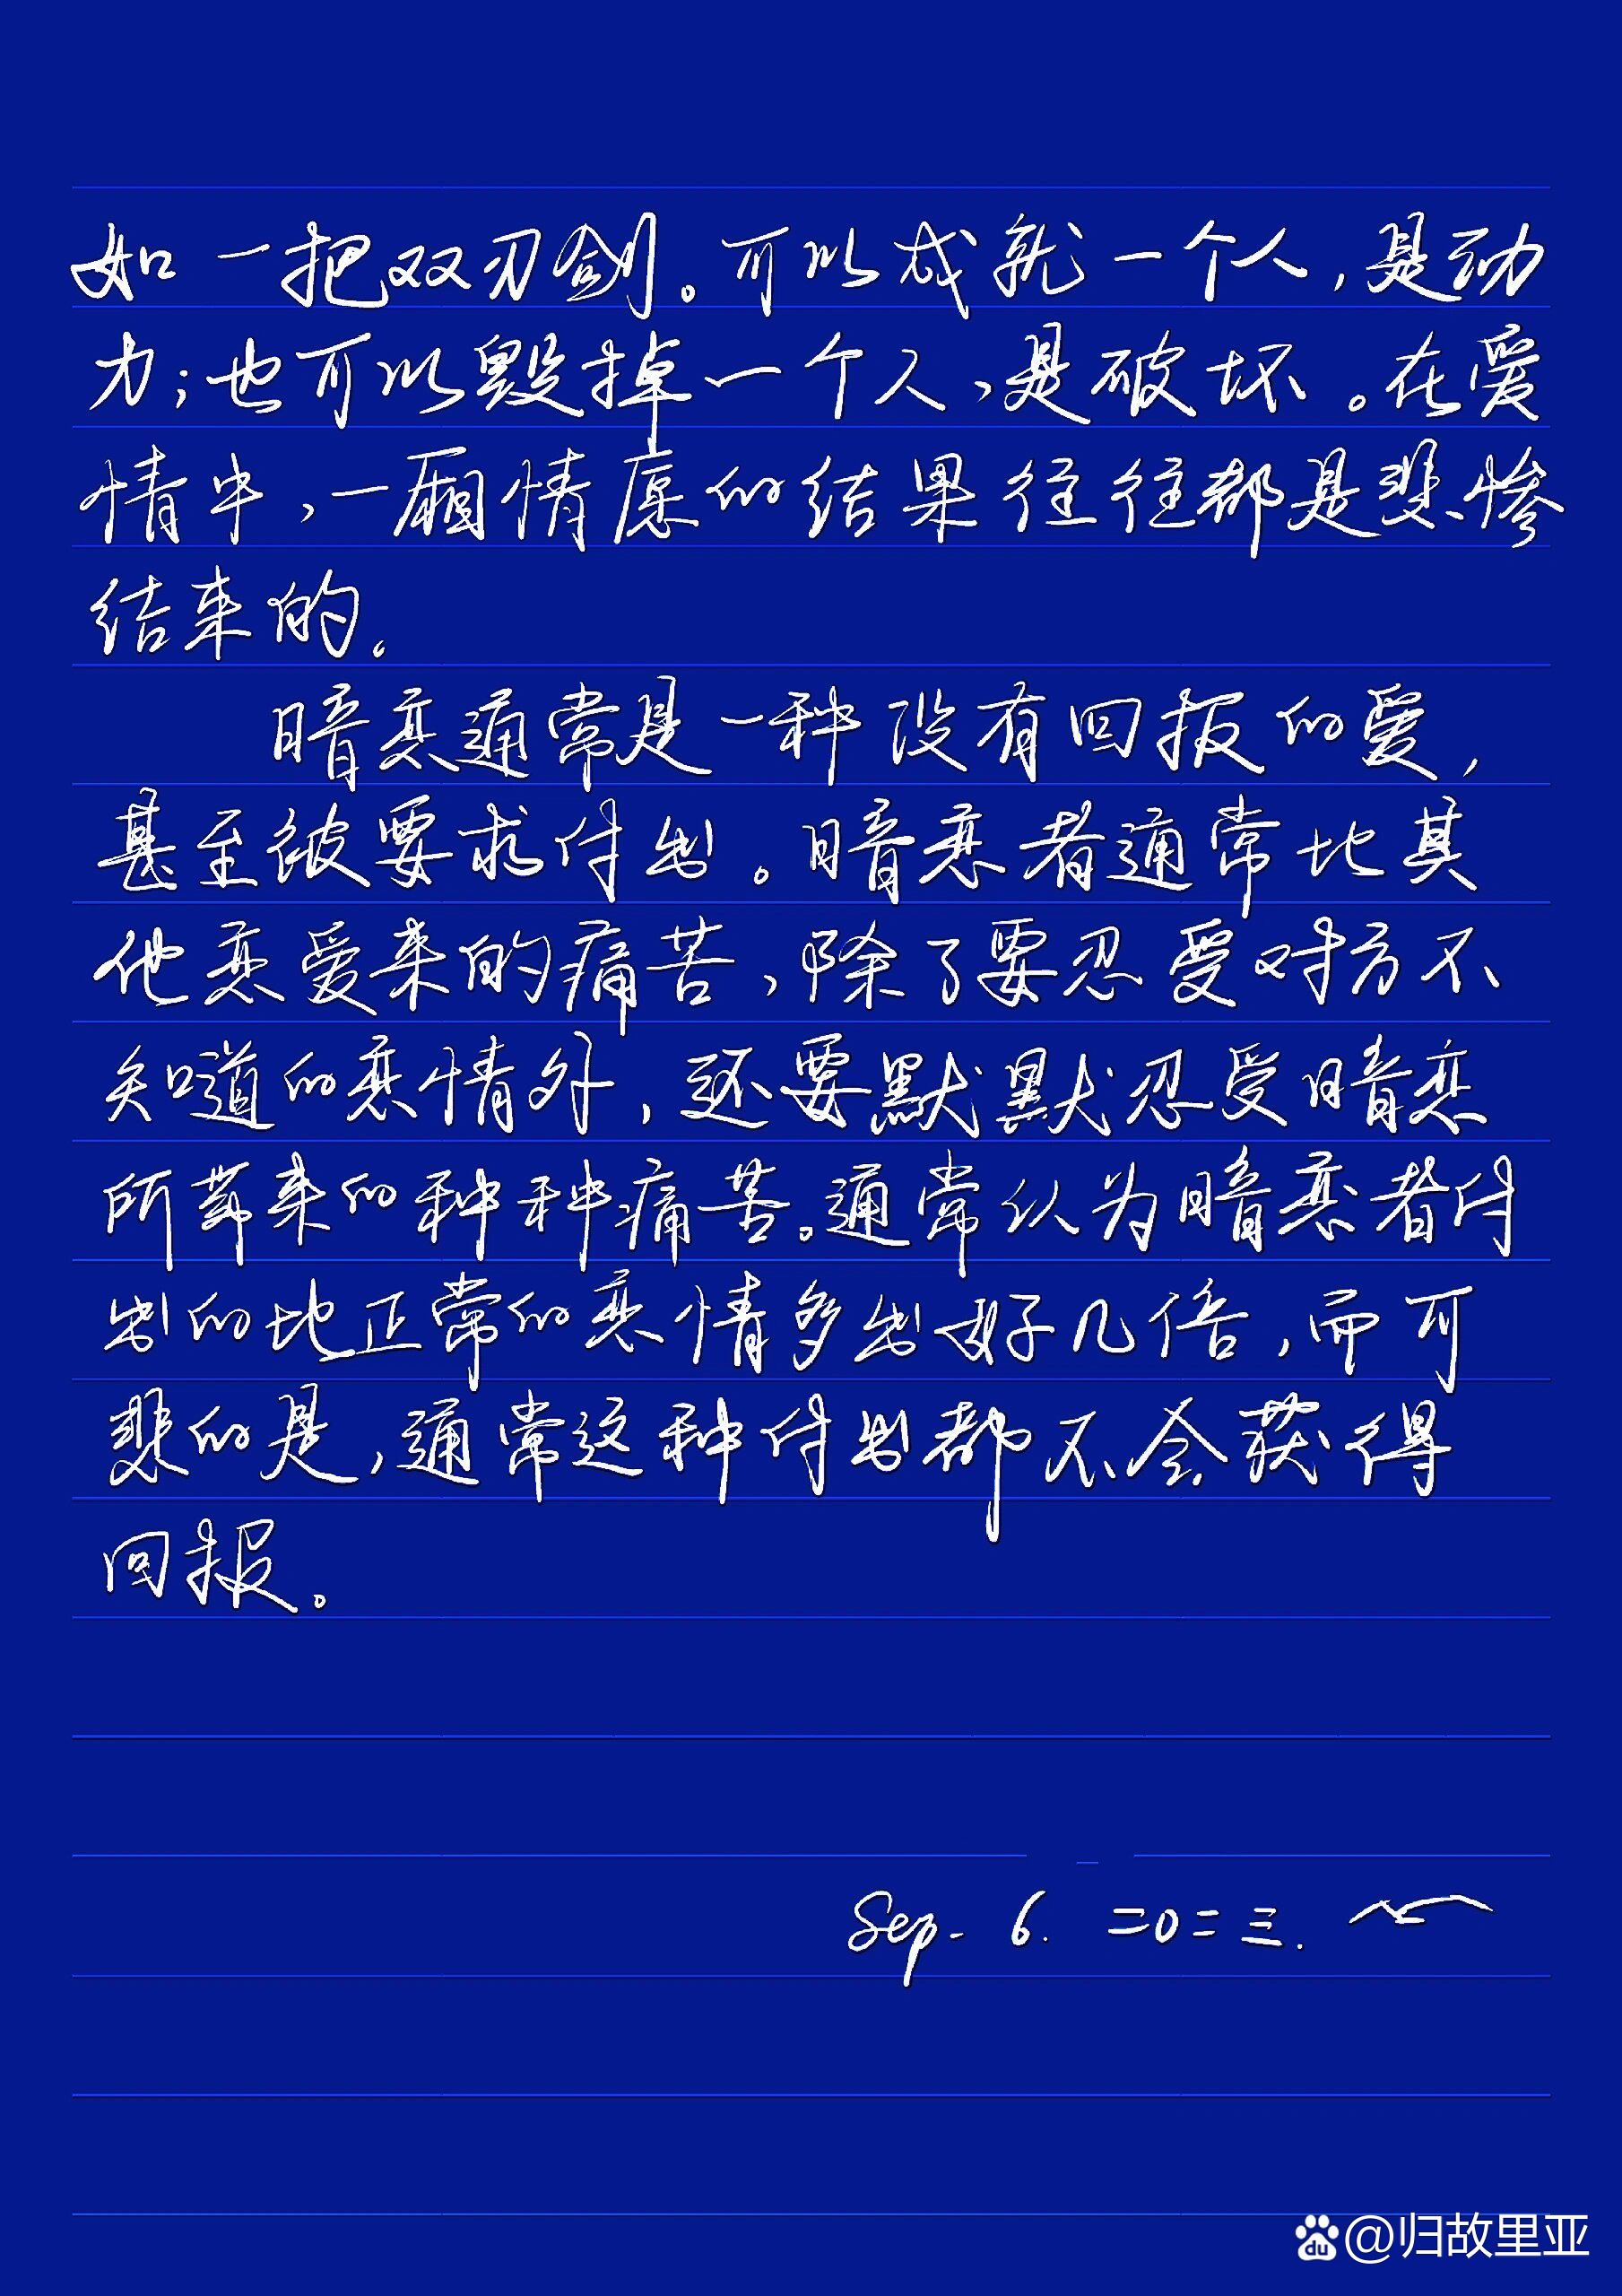 如一把双刃剑。可以成就一个人,是动
力;也可以毁掉一个人,是破坏。在爱
情中,一厢情愿的结果往往都是悲惨
结来的。
暗恋通常是一种没有回报的爱,
甚至被要求付出。暗恋者通常比其
他恋爱来的痛苦,除了要忍受对方不
知道的恋情外,还要默默忍受暗恋
所带来的种种痛苦。通常认为暗恋者付
出的比正常的恋情多出好几倍,而可
悲的是,通常这种付出都不会获得
回报。
Sep. 6. 二0二三.
du @归故里亚